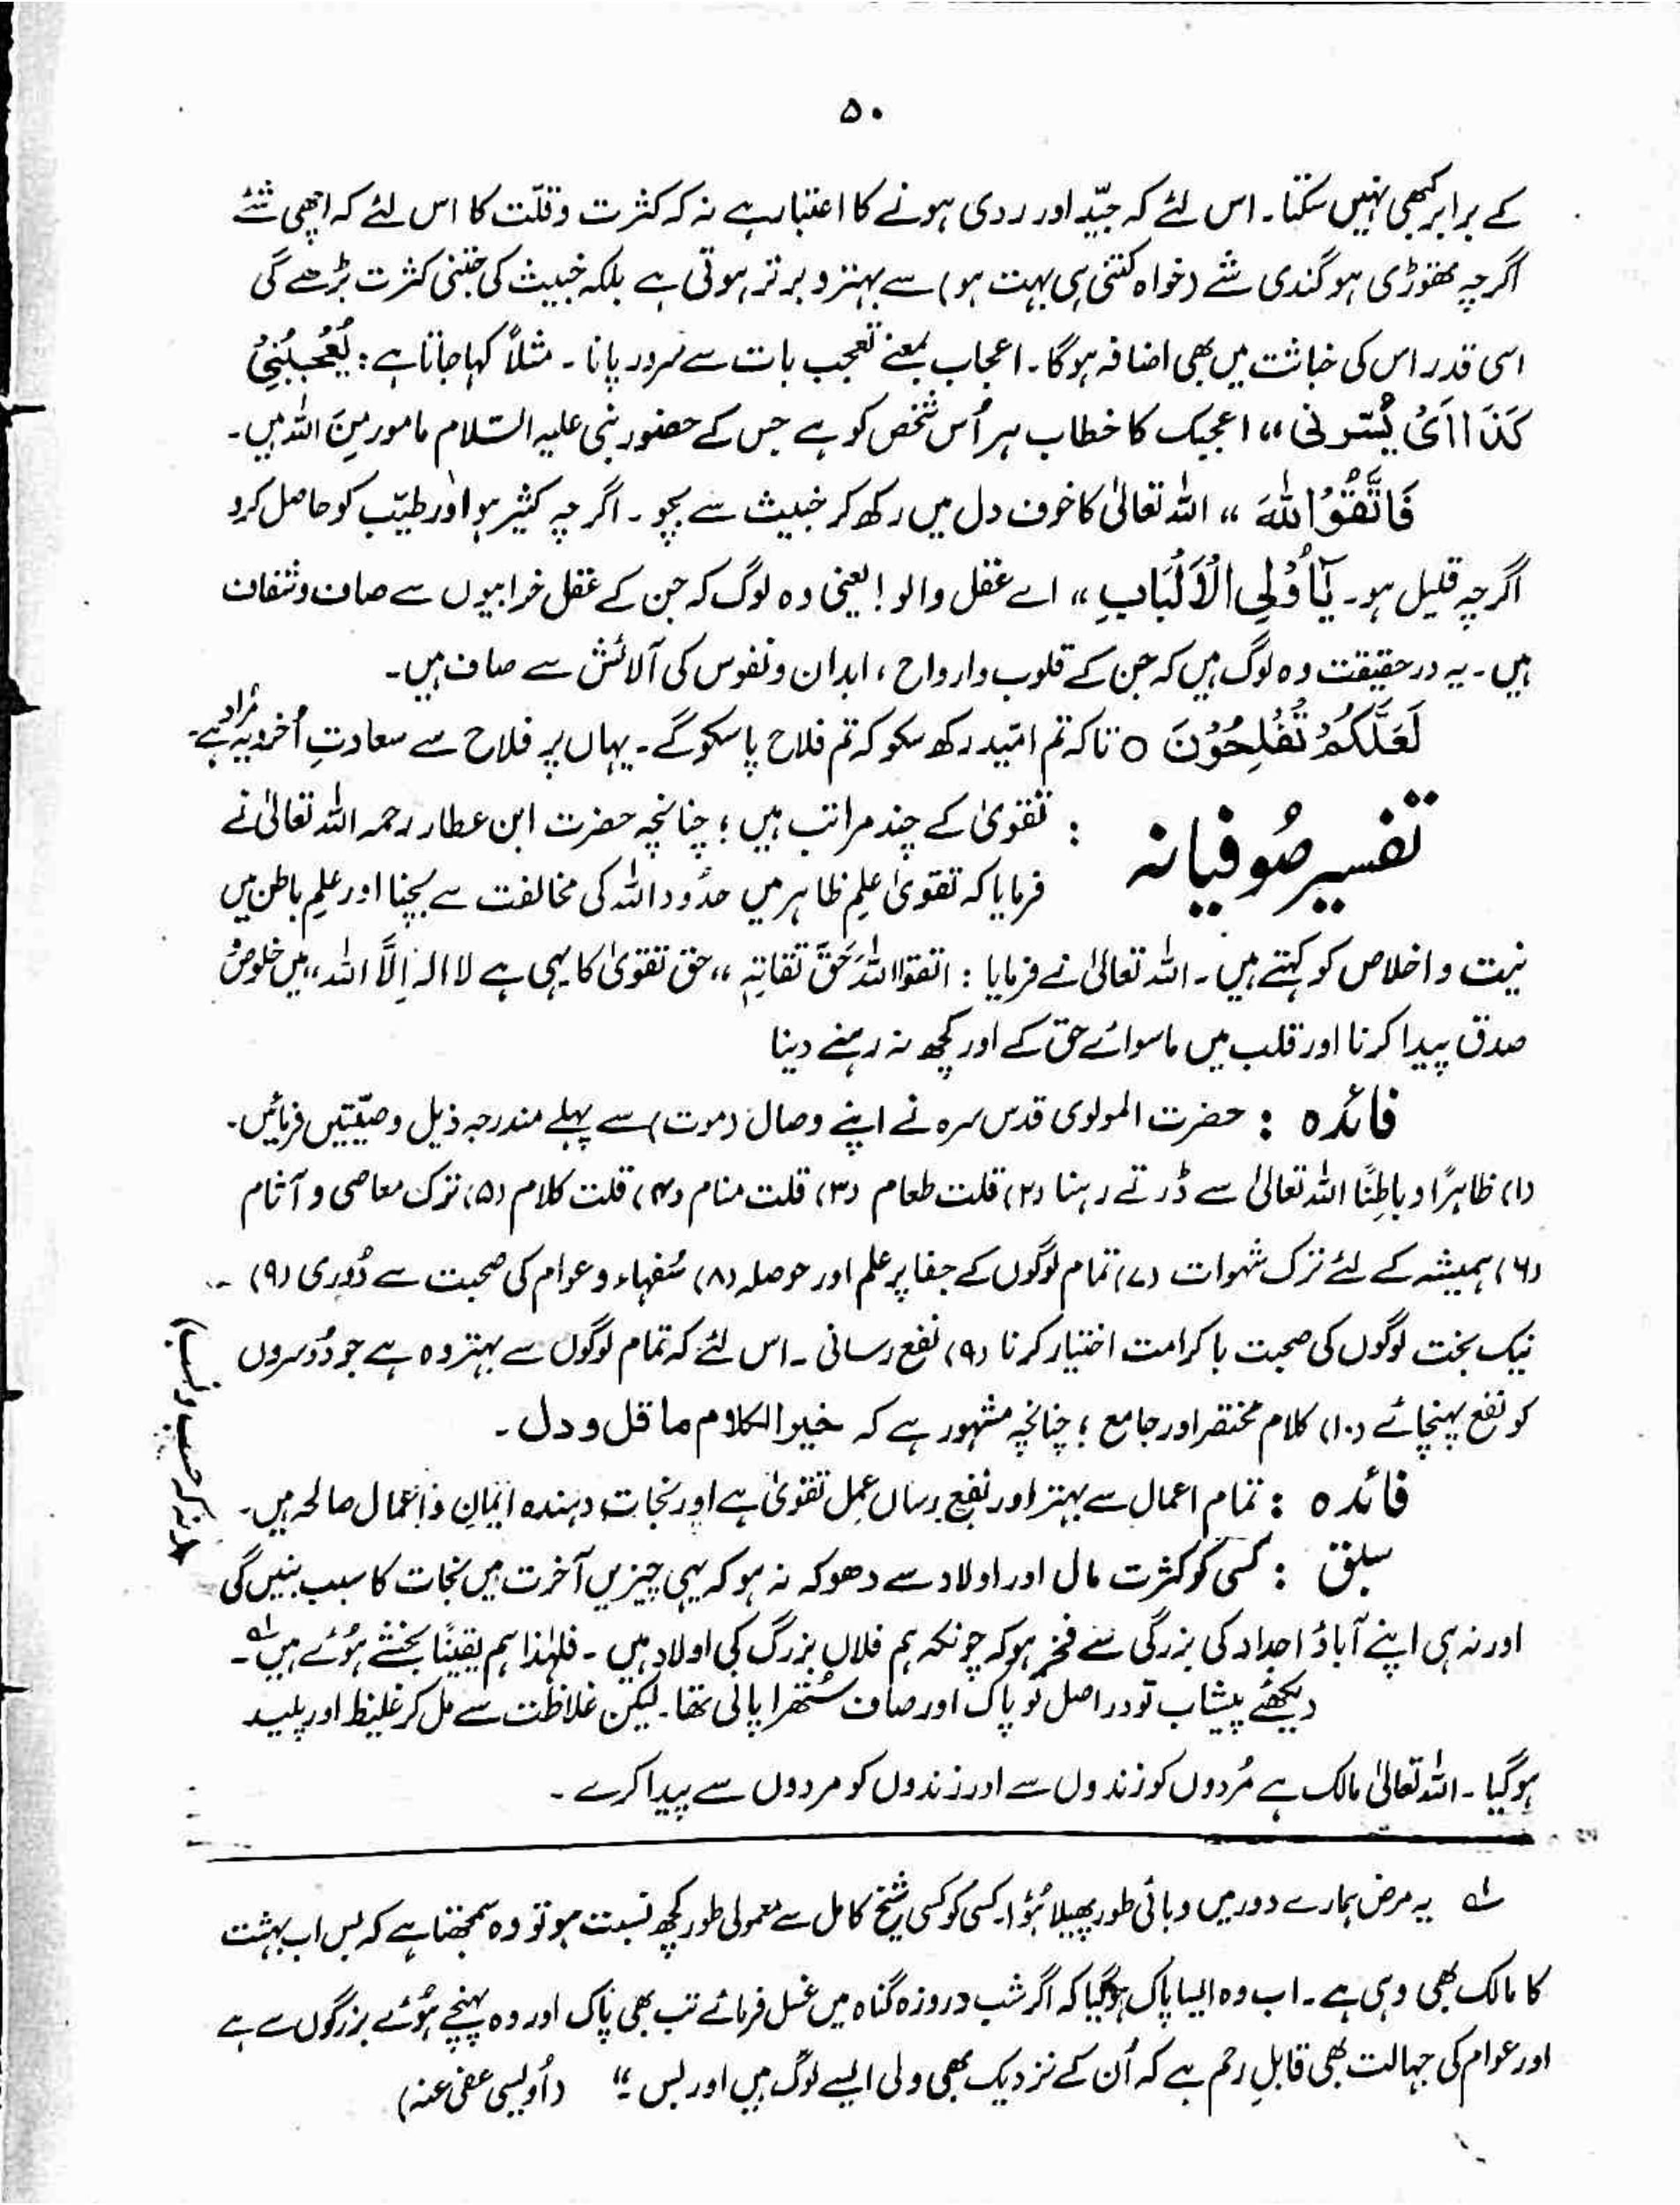 ۵۰
کے برابر کبھی نہیں سکتا۔ اس لئے کہ جیّد اور ردی ہونے کا اعتبار ہے نہ کہ کثرت و قلّت کا اس لئے کہ اچھی شئے
اگرچہ تھوڑی ہو گندی شے (خواہ کتنی ہی بہت ہو) سے بہتر و برتر ہوتی ہے بلکہ خبیث کی جتنی کثرت بڑھے گی
اسی قدر اس کی خباثت میں بھی اضافہ ہوگا۔ اعجاب بمعنے تعجب بات سے سرور پانا۔ مثلاً کہا جاتا ہے : یُعْجِبُنِیْ
کَذَا اَیْ یُسَرّنی ،، اعجبک کا خطاب ہر اُس شخص کو ہے جس کے حضور نبی علیہ السّلام مامور مِنَ اللہ ہیں۔
فَاتَّقُوا اللہَ ،، اللہ تعالیٰ کا خوف دل میں رکھ کر خبیث سے بچو۔ اگرچہ کثیر ہو اور طیّب کو حاصل کرو
اگرچہ قلیل ہو۔ یٰٓاُولِی الْاَلْبَابِ ،، اے عقل والو! یعنی وہ لوگ کہ جن کے عقل خرابیوں سے صاف و شفاف
ہیں۔ یہ درحقیقت وہ لوگ ہیں کہ جن کے قلوب و ارواح ، ابدان و نفوس کی آلائش سے صاف ہیں۔
لَعَلَّکُمْ تُفْلِحُوْنَ ○ تاکہ تم امّید رکھ سکو کہ تم فلاح پاسکو گے۔ یہاں پر فلاح سے سعادتِ اُخرویہ مُراد ہے۔
تفسیر صُوفیانہ : تقویٰ کے چند مراتب ہیں ؛ چنانچہ حضرت ابن عطار رحمہ اللہ تعالیٰ نے
فرمایا کہ تقویٰ علمِ ظاہر میں حدُود اللہ کی مخالفت سے بچنا اور علمِ باطن میں
نیت و اخلاص کو کہتے ہیں۔ اللہ تعالیٰ نے فرمایا : اتقوا اللہَ حَقَّ تقاتہٖ ،، حق تقویٰ کا یہی ہے لا الہ اِلَّا اللہ ،، میں خلوصُ
صدق پیدا کرنا اور قلب میں ماسوائے حق کے اور کچھ نہ رہنے دینا
فائدہ : حضرت المولوی قدس سرہ نے اپنے وصال (موت) سے پہلے مندرجہ ذیل وصیّتیں فرمائیں۔
(۱) ظاہراً و باطناً اللہ تعالیٰ سے ڈرتے رہنا (۲) قلت طعام (۳) قلت منام (۴) قلت کلام (۵) ترک معاصی و آثام
(۶) ہمیشہ کے لئے ترک شہوات (۷) تمام لوگوں کے جفا پر علم اور حوصلہ (۸) سُفہاء و عوام کی صحبت سے دُوری (۹) ۔
نیک بخت لوگوں کی صحبت با کرامت اختیار کرنا (۹) نفع رسانی۔ اس لئے کہ تمام لوگوں سے بہتر وہ ہے جو دُوسروں
کو نفع پہنچائے (۱۰) کلام مختصر اور جامع ؛ چنانچہ مشہور ہے کہ خیر الکلام ما قل و دل۔
فائدہ : تمام اعمال سے بہتر اور نفع رساں عمل تقویٰ ہے اور نجات دہندہ ایمان و اعمال صالحہ ہیں۔
(نہ کہ حسب و نسب)
سبق : کسی کو کثرت مال اور اولاد سے دھوکہ نہ ہو کہ یہی چیزیں آخرت میں نجات کا سبب بنیں گی
اور نہ ہی اپنے آباؤ اجداد کی بزرگی سے فخر ہو کہ چونکہ ہم فلاں بزرگ کی اولاد ہیں۔ فلہٰذا ہم یقیناً بخشے ہوئے ہیں لہ۔
دیکھئے پیشاب تو دراصل تو پاک اور صاف ستھرا پانی تھا۔ لیکن غلاظت سے مل کر غلیظ اور پلید
ہوگیا۔ اللہ تعالیٰ مالک ہے مُردوں کو زندوں سے اور زندوں کو مردوں سے پیدا کرے۔
لہ یہ مرض ہمارے دور میں وبائی طور پھیلا ہُوا۔ کسی کو کسی شیخ کامل سے معمولی طور کچھ نسبت ہو تو وہ سمجھتا ہے کہ بس اب بہشت
کا مالک بھی وہی ہے۔ اب وہ ایسا پاک ہوگیا کہ اگر شب و روزہ گناہ میں غسل فرمائے تب بھی پاک اور وہ پہنچے ہُوئے بزرگوں سے ہے
اور عوام کی جہالت بھی قابلِ رحم ہے کہ اُن کے نزدیک بھی ولی ایسے لوگ ہیں اور بس۔“ (اُویسی عفی عنہ)